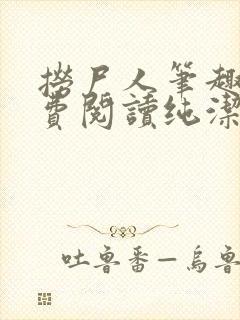 撈尸人筆趣
費閱讀純潔
吐魯番—烏魯